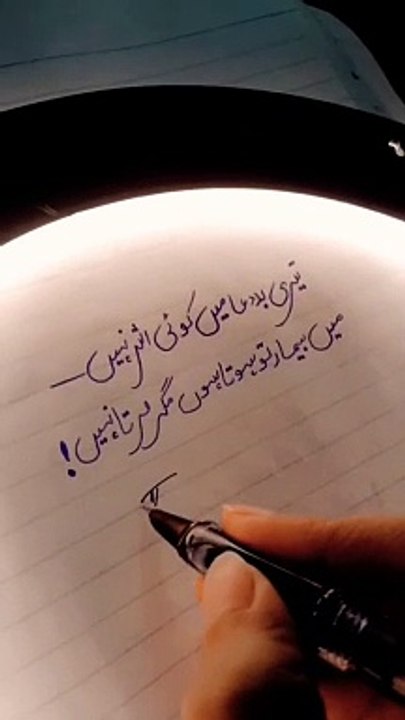 تیری بددعا میں کوئی اثر نہیں
میں بیمار تو ہوتا ہوں مگر مرتا نہیں!